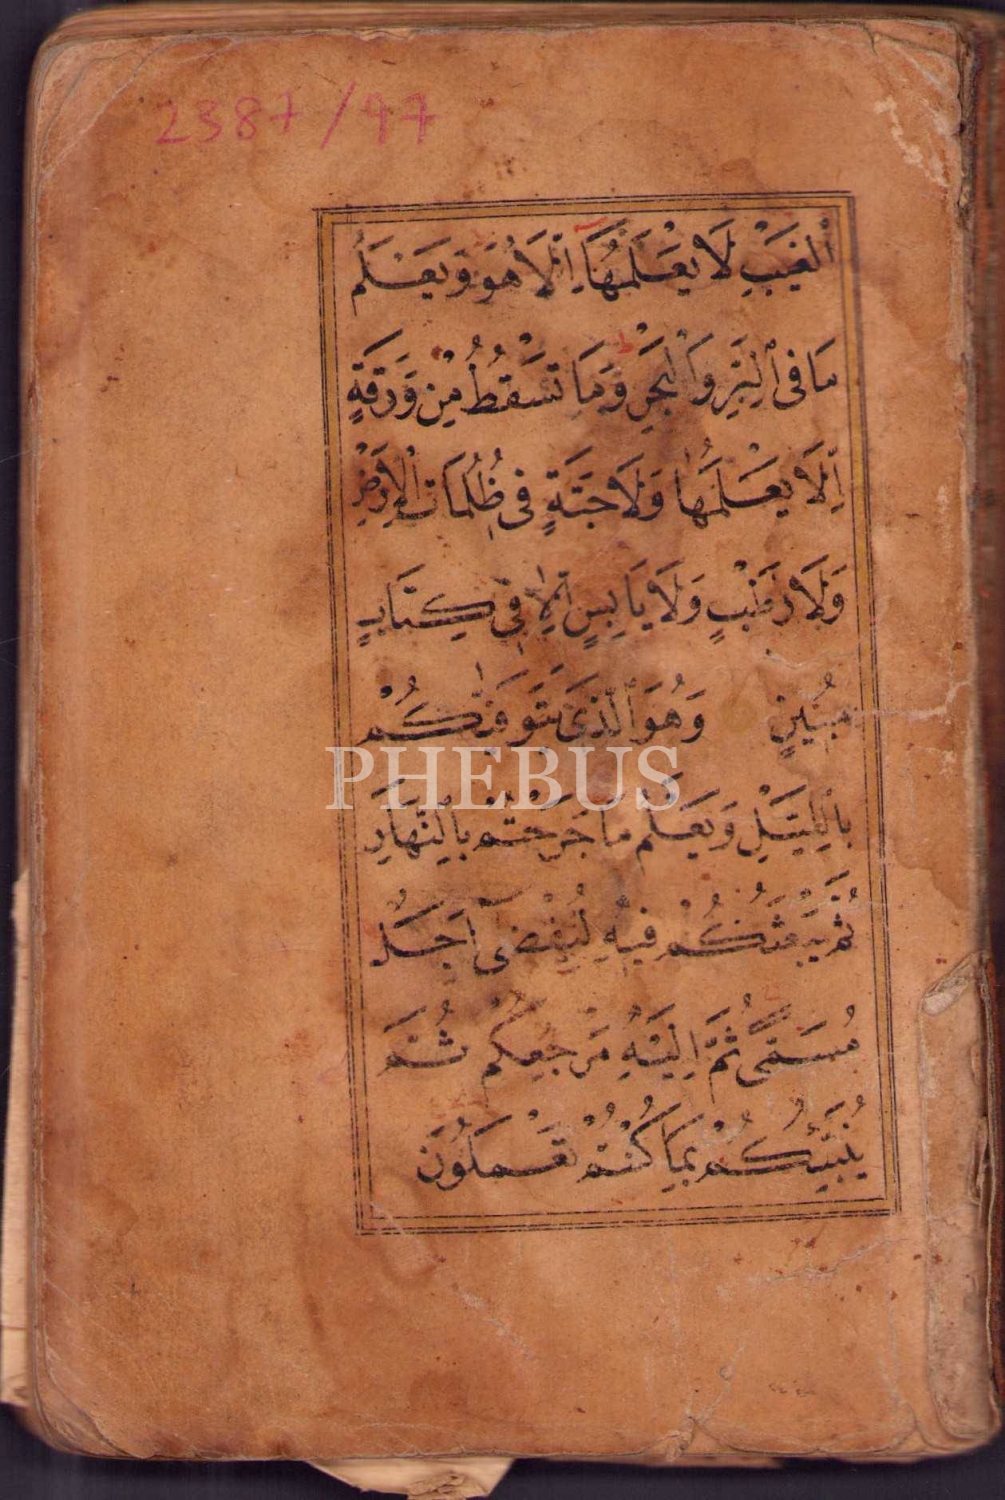 2387/97
ٱلْغَيْبِ لَا يَعْلَمُهَا إِلَّا هُوَ وَيَعْلَمُ
مَا فِى ٱلْبَرِّ وَالْبَحْرِ وَمَا تَسْقُطُ مِنْ وَرَقَةٍ
إِلَّا يَعْلَمُهَا وَلَا حَبَّةٍ فِى ظُلُمَاتِ الْأَرْضِ
وَلَا رَطْبٍ وَلَا يَابِسٍ اِلَّا فِى كِتَابٍ
مُبِينٍ وَهُوَ الَّذِى يَتَوَفّٰيكُمْ
بِالَّيْلِ وَيَعْلَمُ مَا جَرَحْتُمْ بِالنَّهَارِ
ثُمَّ يَبْعَثُكُمْ فِيهِ لِيُقْضٰى اَجَلٌ
مُسَمًّى ثُمَّ اِلَيْهِ مَرْجِعُكُمْ ثُمَّ
يُنَبِّئُكُمْ بِمَا كُنْتُمْ تَعْمَلُونَ
PHEBUS